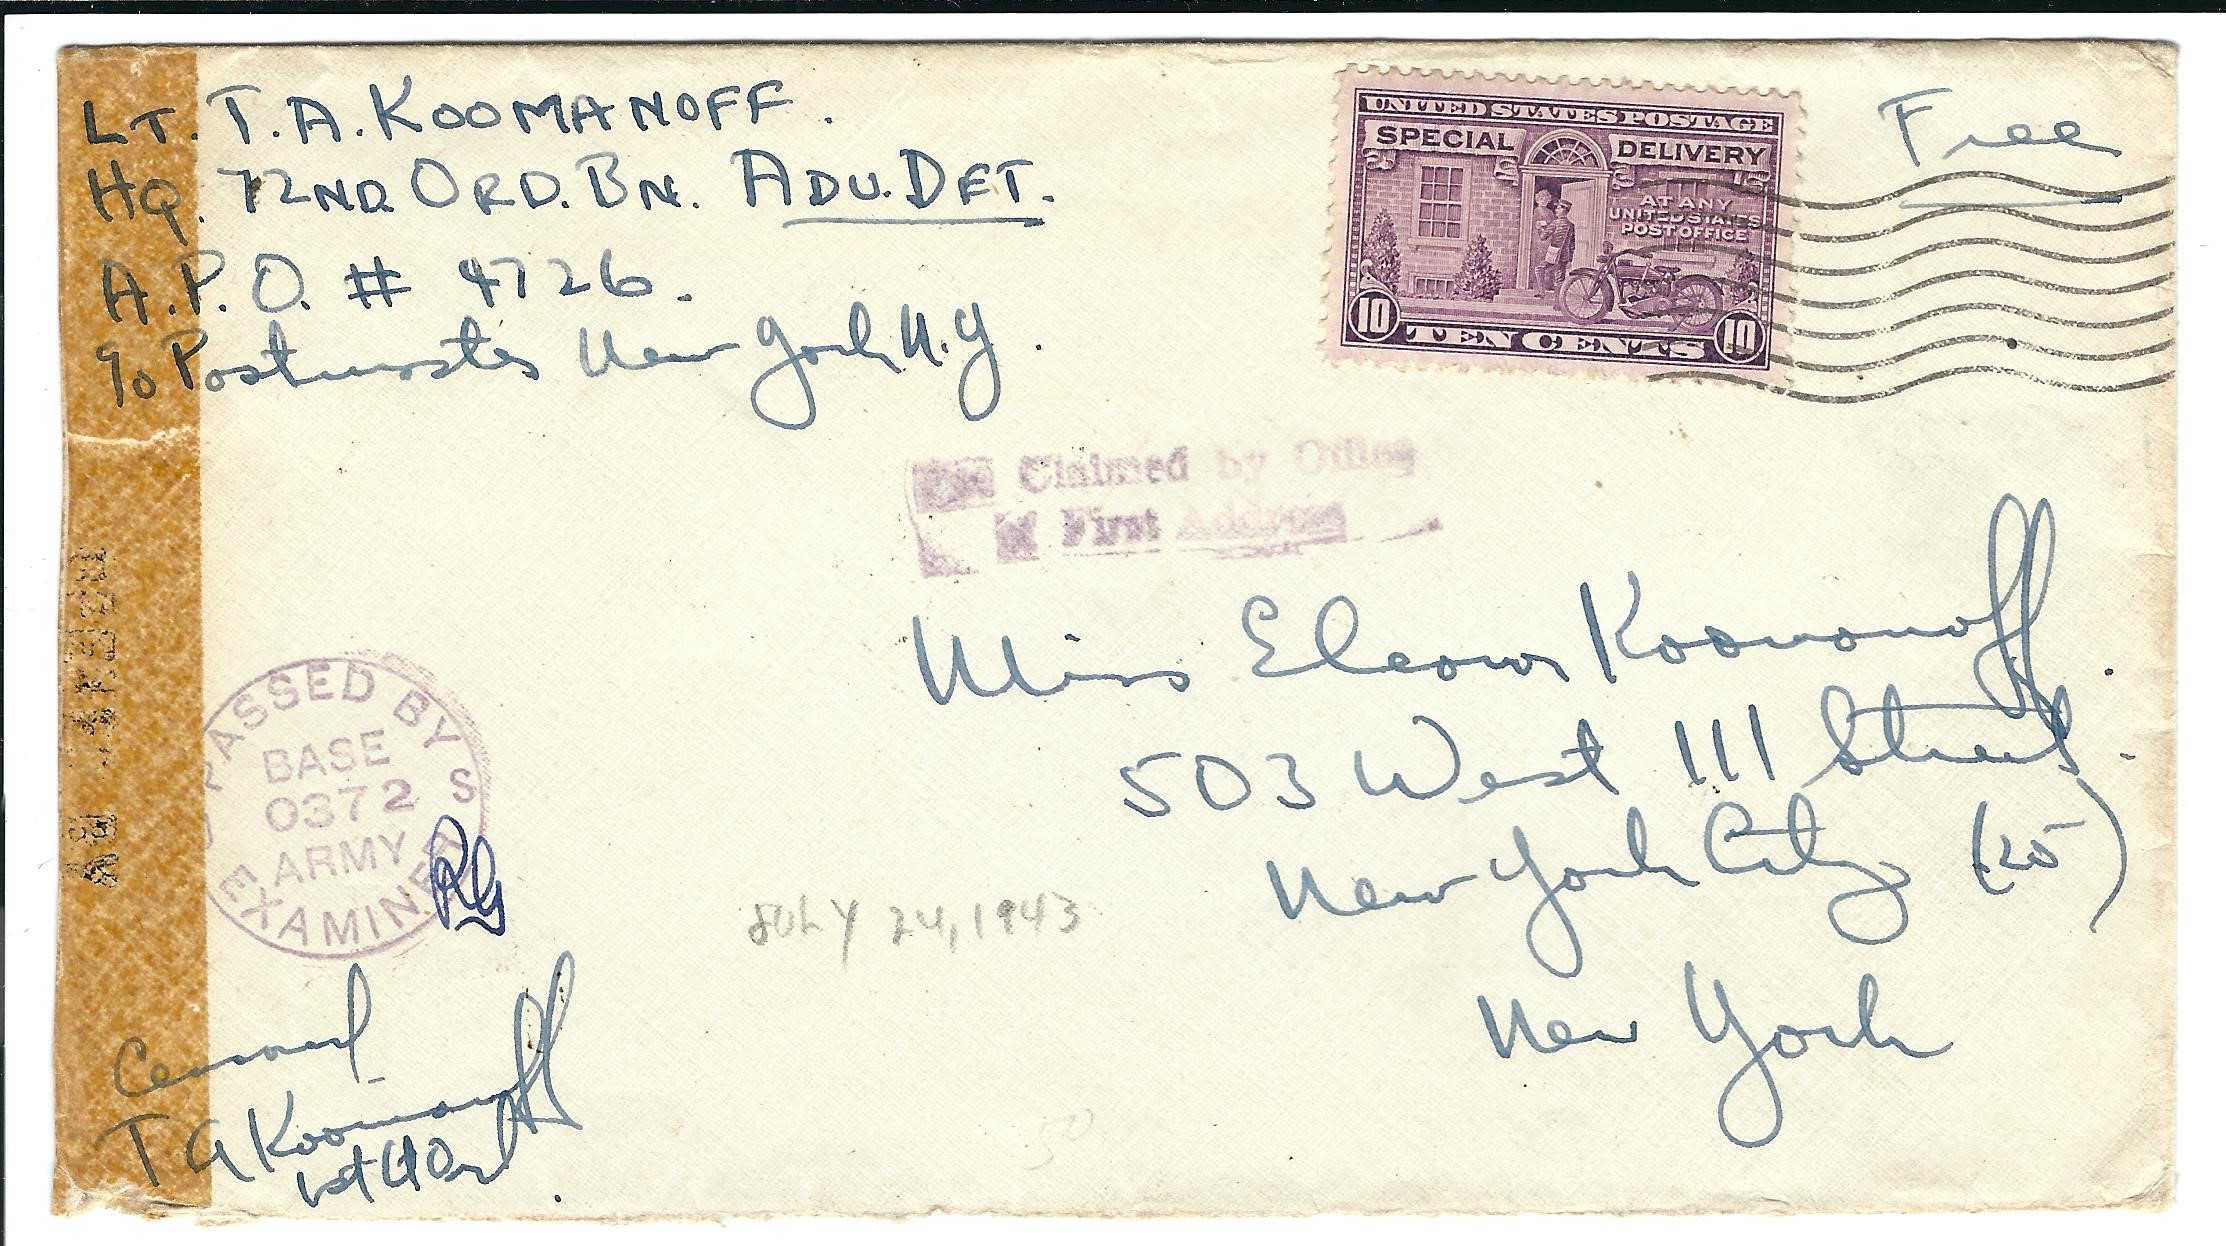 LT. T. A. KOOMANOFF.
HQ. 72ND. ORD. BN. ADV. DET.
A.P.O. # 4726.
c/o Postmaster New York N.Y.
UNITED STATES POSTAGE
SPECIAL DELIVERY
AT ANY
UNITED STATES
POST OFFICE
10 TEN CENTS 10
Free
Fee Claimed by Office
of First Address
Miss Eleanor Koomanoff.
503 West 111 Street.
New York City (25)
New York
PASSED BY
BASE
0372
ARMY
EXAMINER
RG
JULY 24, 1943
Censored
T A Koomanoff
1st Lt Ord
50